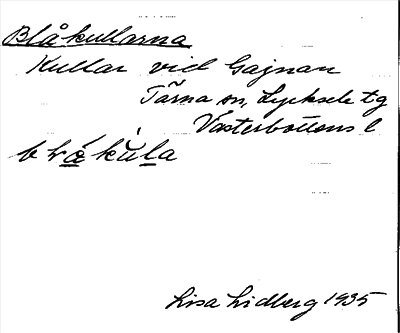 Blåkullarna
Kullar vid Gajnan
Tärna sn, Lycksele tg
Västerbottens l
Lisa Lidberg 1935